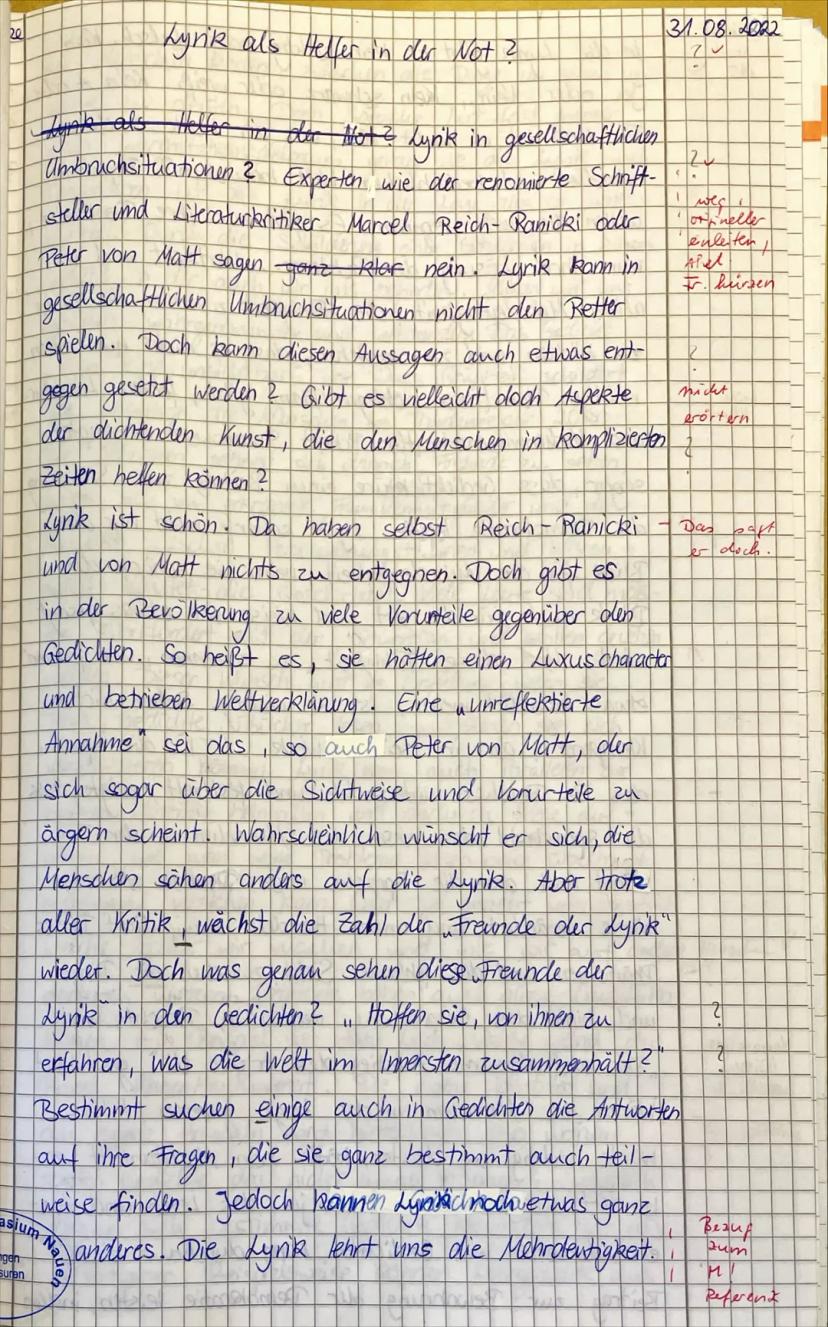 31.08.2022
Lyrik als Helfer in der Not?
? ✓
Lyrik als Helfer in der Not? Lyrik in gesellschaftlichen
Umbruchsituationen? Experten, wie der renomierte Schrift-
? ✓
steller und Literaturkritiker Marcel Reich-Ranicki oder
weg,
origineller
einleiten,
Peter von Matt sagen ganz klar nein. Lyrik kann in
viel
Fr. kürzen
gesellschaftlichen Umbruchsituationen nicht den Retter
spielen. Doch kann diesen Aussagen auch etwas ent-
?
gegen gesetzt werden? Gibt es vielleicht doch Aspekte
nicht
erörtern
der dichtenden Kunst, die den Menschen in komplizierten
?
Zeiten helfen können?
Lyrik ist schön. Da haben selbst Reich-Ranicki
- Das sagt
er doch.
und von Matt nichts zu entgegnen. Doch gibt es
in der Bevölkerung zu viele Vorurteile gegenüber den
Gedichten. So heißt es, sie hätten einen Luxuscharacter
und betrieben Weltverklärung. Eine „unreflektierte
Annahme" sei das, so auch Peter von Matt, der
sich sogar über die Sichtweise und Vorurteile zu
ärgern scheint. Wahrscheinlich wünscht er sich, die
Menschen sähen anders auf die Lyrik. Aber trotz
aller Kritik, wächst die Zahl der „Freunde der Lyrik"
wieder. Doch was genau sehen diese „Freunde der
Lyrik" in den Gedichten? „Hoffen sie, von ihnen zu
?
erfahren, was die Welt im Innersten zusammenhält?"
?
Bestimmt suchen einige auch in Gedichten die Antworten
auf ihre Fragen, die sie ganz bestimmt auch teil-
weise finden. Jedoch können Lyrik noch etwas ganz
anderes. Die Lyrik lehrt uns die Mehrdeutigkeit.
Bezug
zum
M!
Referenz
asium Nauen